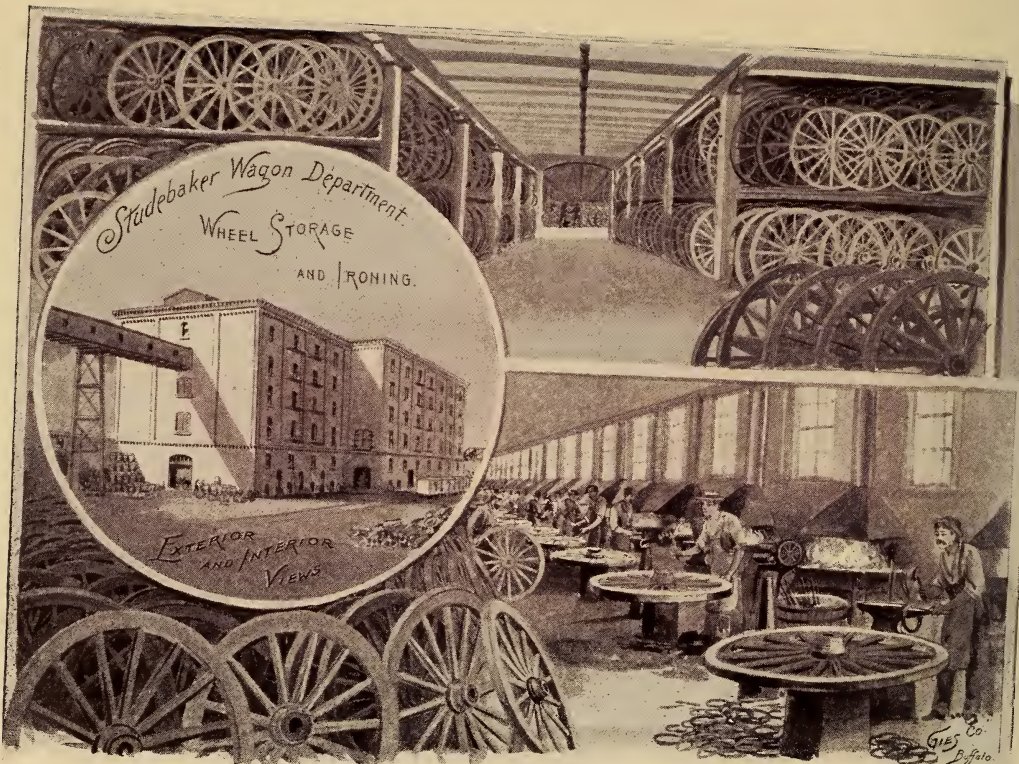 Studebaker Wagon Department
WHEEL STORAGE
AND IRONING.
EXTERIOR
AND INTERIOR
VIEWS
GIES Co.
Buffalo.